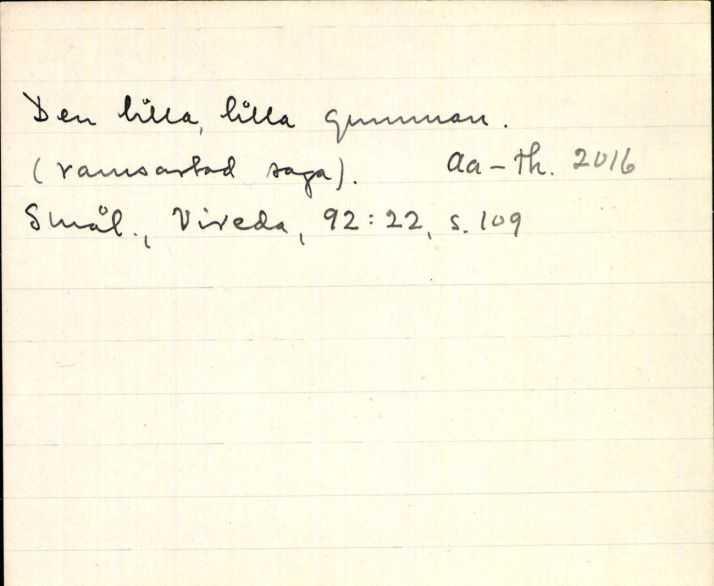 Den lilla, lilla gumman.
(ramsartad saga). Aa-Th. 2016
Smål., Vireda, 92:22, s. 109